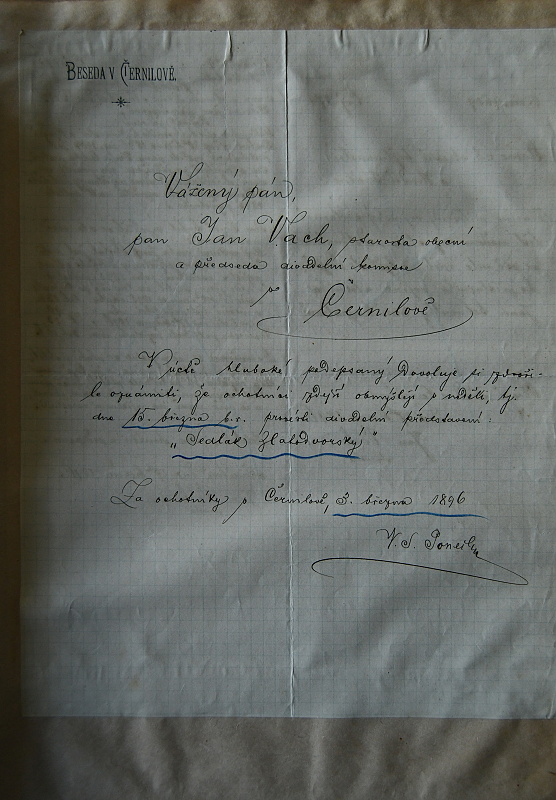 BESEDA V ČERNILOVĚ.
Vážený pán,
pan Jan Vach, starosta obecní
a předseda divadelní komise
v Černilově
V úctě hluboké podepsaný dovoluje si zdvoři-
le oznámiti, že ochotníci zdejší obmýšlejí v neděli, tj.
dne 15. března b.r. provésti divadelní představení:
„Sedlák Zlatodvorský"
Za ochotníky v Černilově, 3. března 1896
V. S.